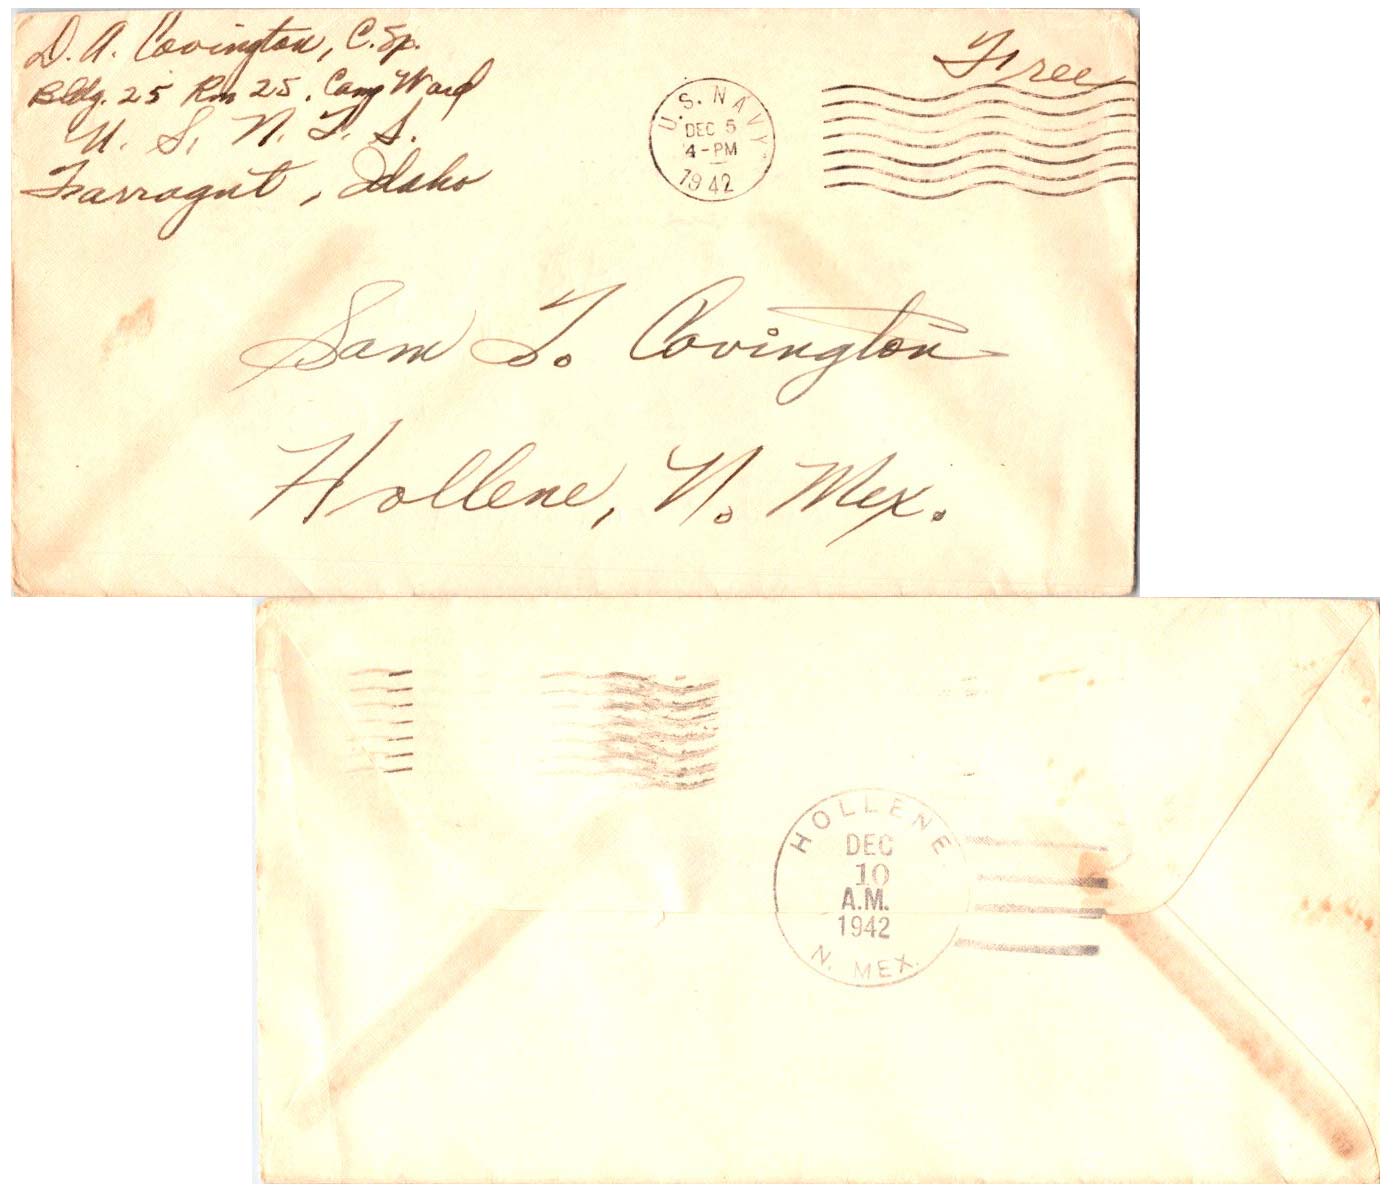 D. A. Covington, C. Sp.
Bldg. 25 Rm 25. Camp Ward
U. S. N. T. S.
Farragut, Idaho
Free
U. S. NAVY.
DEC 5
4-PM
1942
Sam T. Covington
Hollene, N. Mex.
HOLLENE
DEC
10
A.M.
1942
N. MEX.